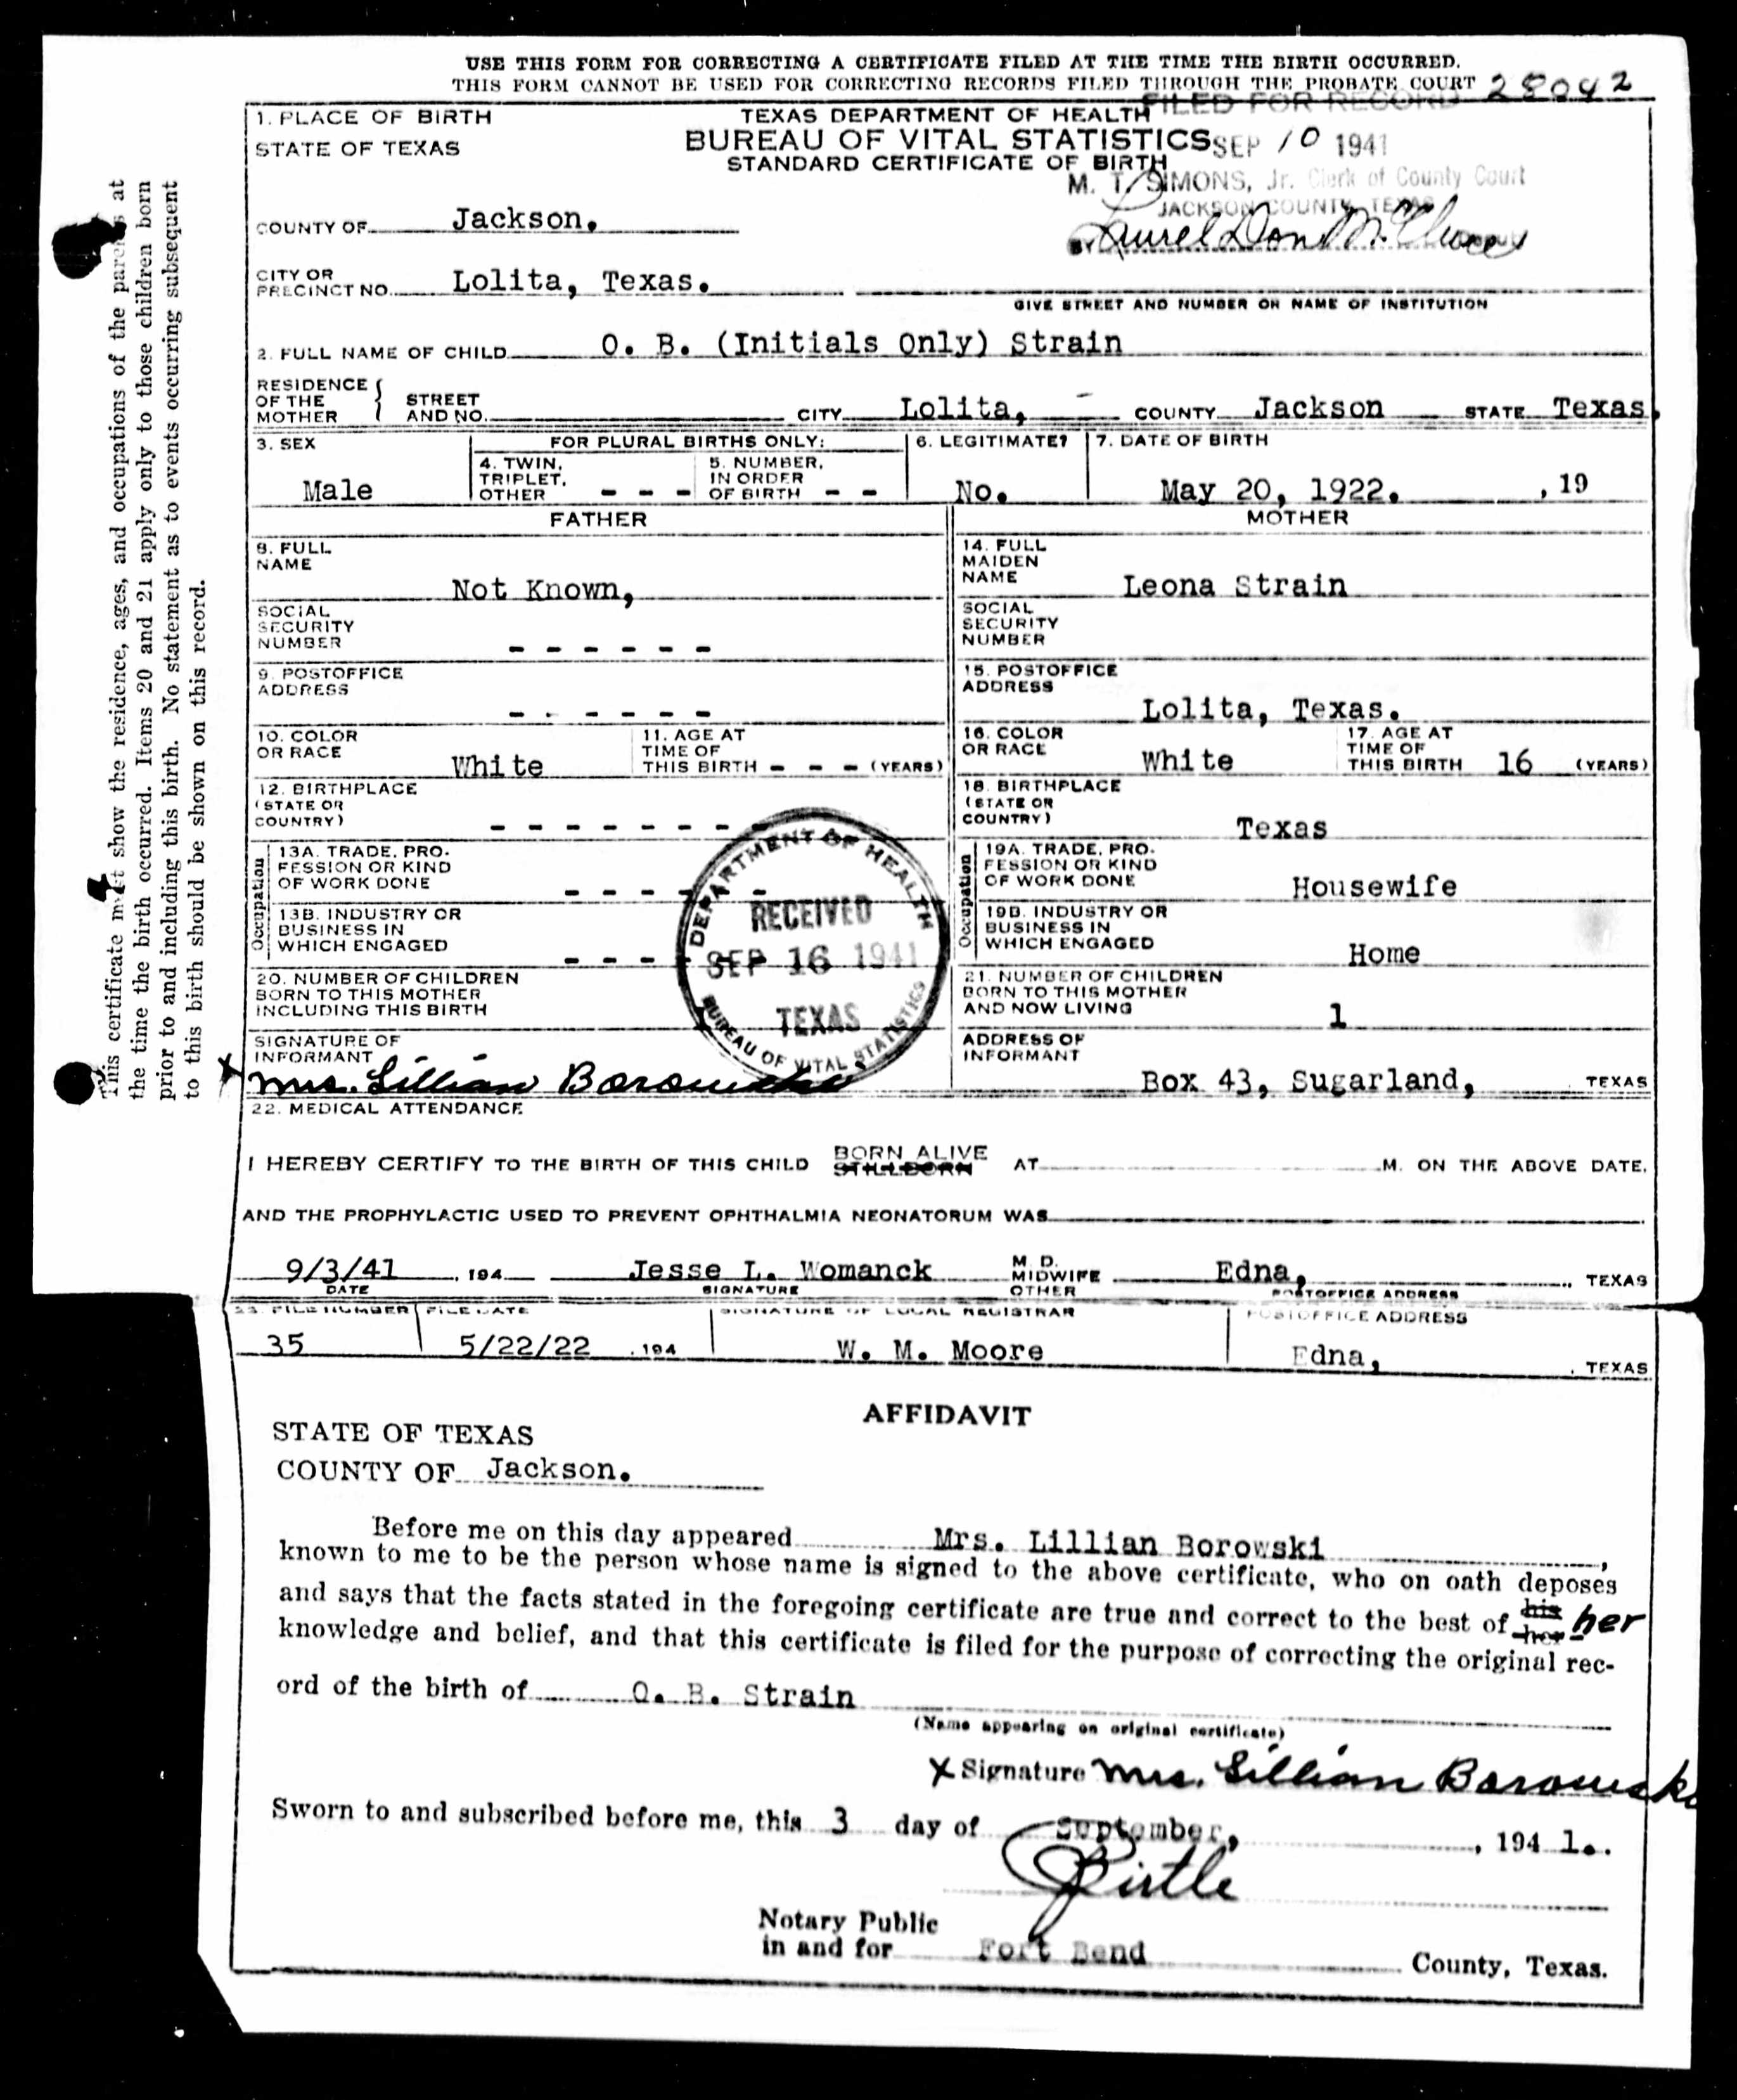 USE THIS FORM FOR CORRECTING A CERTIFICATE FILED AT THE TIME THE BIRTH OCCURRED.
THIS FORM CANNOT BE USED FOR CORRECTING RECORDS FILED THROUGH THE PROBATE COURT 28042
FILED FOR RECORD
1. PLACE OF BIRTH
STATE OF TEXAS
TEXAS DEPARTMENT OF HEALTH
BUREAU OF VITAL STATISTICS
STANDARD CERTIFICATE OF BIRTH
SEP 10 1941
M. T. SIMONS, Jr. Clerk of County Court
JACKSON COUNTY, TEXAS
COUNTY OF Jackson.
BY Deputy
CITY OR
PRECINCT NO. Lolita, Texas.
GIVE STREET AND NUMBER OR NAME OF INSTITUTION
2. FULL NAME OF CHILD O. B. (Initials Only) Strain
RESIDENCE
OF THE
MOTHER
STREET
AND NO.
CITY Lolita, COUNTY Jackson STATE Texas,
3. SEX
Male
FOR PLURAL BIRTHS ONLY:
4. TWIN,
TRIPLET,
OTHER - - -
5. NUMBER,
IN ORDER
OF BIRTH - -
6. LEGITIMATE?
No.
7. DATE OF BIRTH
May 20, 1922. , 19
FATHER
MOTHER
8. FULL
NAME
Not Known,
14. FULL
MAIDEN
NAME Leona Strain
SOCIAL
SECURITY
NUMBER - - - - - -
SOCIAL
SECURITY
NUMBER
9. POSTOFFICE
ADDRESS
- - - - - -
15. POSTOFFICE
ADDRESS
Lolita, Texas.
10. COLOR
OR RACE White
11. AGE AT
TIME OF
THIS BIRTH - - - (YEARS)
16. COLOR
OR RACE White
17. AGE AT
TIME OF
THIS BIRTH 16 (YEARS)
12. BIRTHPLACE
(STATE OR
COUNTRY) - - - - - - -
18. BIRTHPLACE
(STATE OR
COUNTRY) Texas
Occupation
13A. TRADE, PRO-
FESSION OR KIND
OF WORK DONE - - - - - -
13B. INDUSTRY OR
BUSINESS IN
WHICH ENGAGED - - - -
Occupation
19A. TRADE, PRO-
FESSION OR KIND
OF WORK DONE Housewife
19B. INDUSTRY OR
BUSINESS IN
WHICH ENGAGED Home
DEPARTMENT OF HEALTH
RECEIVED
SEP 16 1941
TEXAS
BUREAU OF VITAL STATISTICS
20. NUMBER OF CHILDREN
BORN TO THIS MOTHER
INCLUDING THIS BIRTH 1
21. NUMBER OF CHILDREN
BORN TO THIS MOTHER
AND NOW LIVING 1
SIGNATURE OF
INFORMANT
X Mrs. Lillian Borowski
ADDRESS OF
INFORMANT
Box 43, Sugarland, TEXAS
22. MEDICAL ATTENDANCE
I HEREBY CERTIFY TO THE BIRTH OF THIS CHILD BORN ALIVE
STILLBORN AT M. ON THE ABOVE DATE.
AND THE PROPHYLACTIC USED TO PREVENT OPHTHALMIA NEONATORUM WAS
9/3/41 , 194
DATE
Jesse L. Womanck
SIGNATURE
M. D.
MIDWIFE
OTHER
Edna, TEXAS
POSTOFFICE ADDRESS
23. FILE NUMBER
35
FILE DATE
5/22/22 , 194
SIGNATURE OF LOCAL REGISTRAR
W. M. Moore
POSTOFFICE ADDRESS
Edna, TEXAS
AFFIDAVIT
STATE OF TEXAS
COUNTY OF Jackson.
Before me on this day appeared Mrs. Lillian Borowski,
known to me to be the person whose name is signed to the above certificate, who on oath deposes
and says that the facts stated in the foregoing certificate are true and correct to the best of his her her
knowledge and belief, and that this certificate is filed for the purpose of correcting the original rec-
ord of the birth of O. B. Strain
(Name appearing on original certificate)
X Signature Mrs. Lillian Borowski
Sworn to and subscribed before me, this 3 day of September, , 194 1..
Pirtle
Notary Public
in and for Fort Bend County, Texas.
This certificate must show the residence, ages, and occupations of the parents at
the time the birth occurred. Items 20 and 21 apply only to those children born
prior to and including this birth. No statement as to events occurring subsequent
to this birth should be shown on this record.